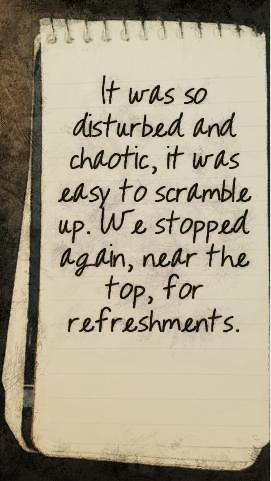 It was so
disturbed and
chaotic, it was
easy to scramble
up. We stopped
again, near the
top, for
refreshments.